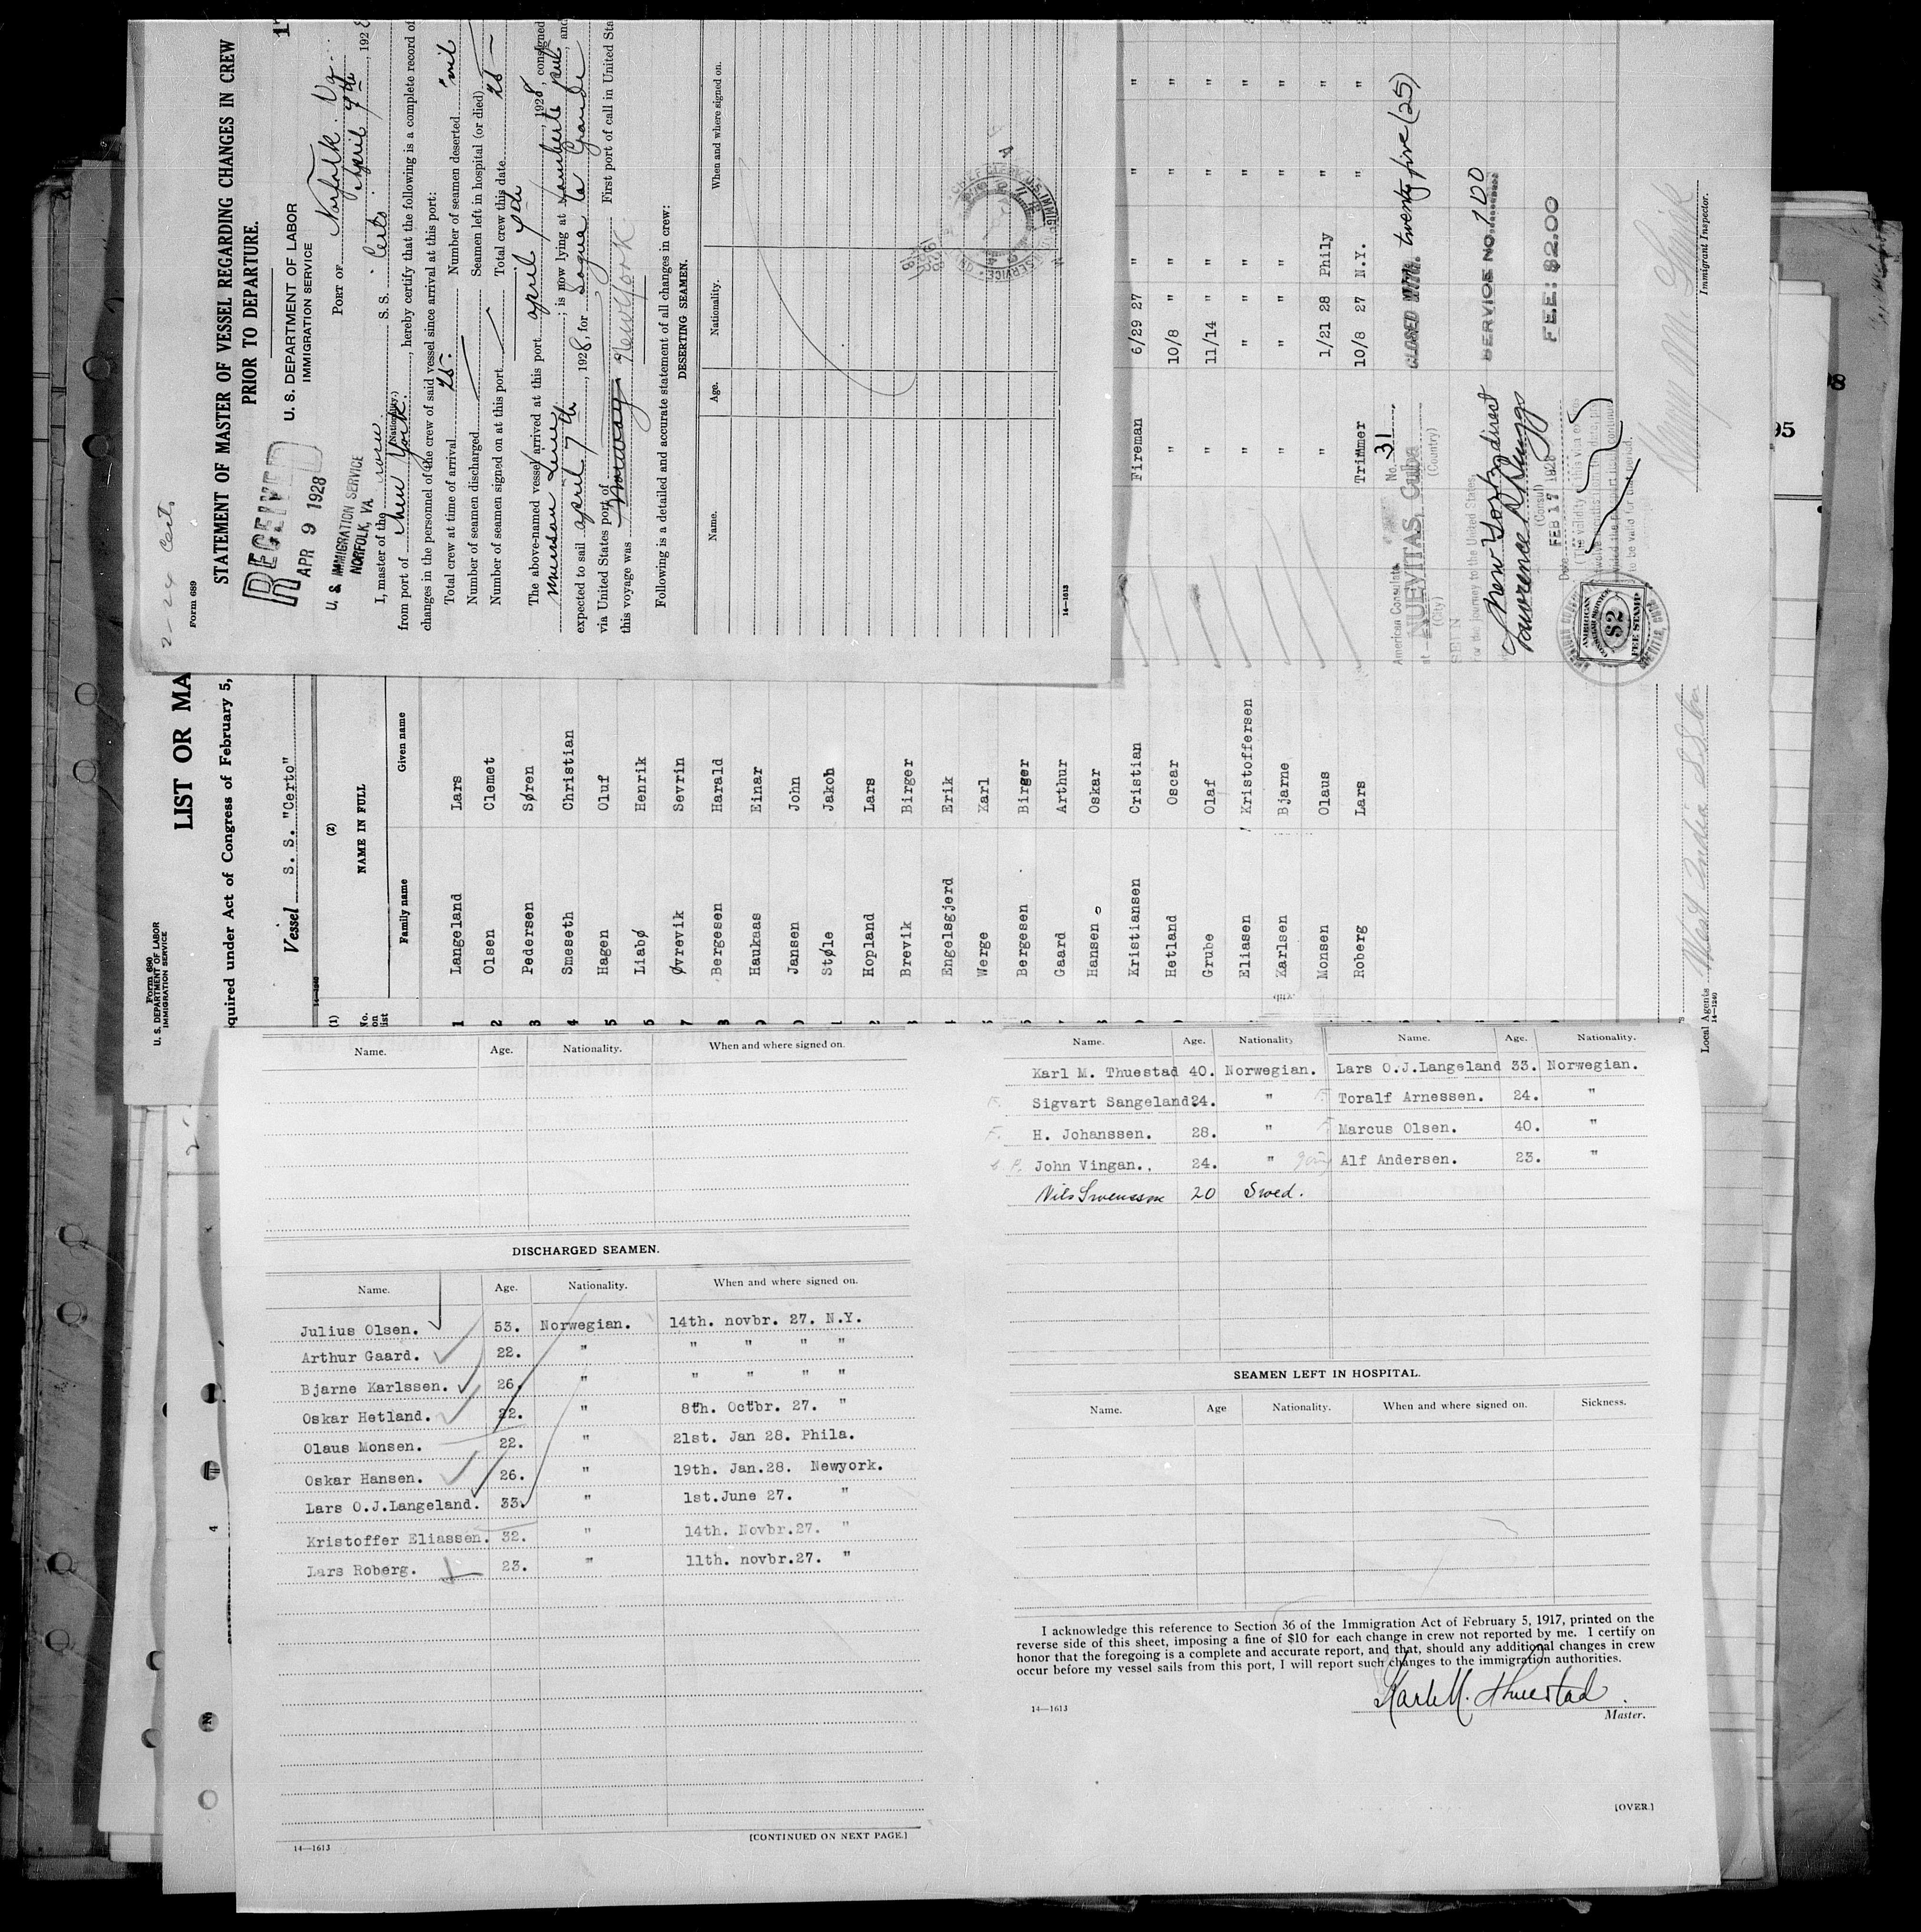 2-24 Certo
Form 689
STATEMENT OF MASTER OF VESSEL REGARDING CHANGES IN CREW
PRIOR TO DEPARTURE.
U. S. DEPARTMENT OF LABOR
IMMIGRATION SERVICE
RECEIVED
APR 9 1928
U. S. IMMIGRATION SERVICE
NORFOLK, VA.
PORT OF Norfolk. Va.
April 7th, 192
I, master of the S. S. Certo
(Nationality.)
from port of New York, hereby certify that the following is a complete record of
changes in the personnel of the crew of said vessel since arrival at this port:
Total crew at time of arrival 25. Number of seamen deserted "nil
Number of seamen discharged Seamen left in hospital (or died)
Number of seamen signed on at this port Total crew this date 25
The above-named vessel arrived at this port april 7th, 1928, consigned
Munson Line; is now lying at Lamberts, and
expected to sail april 7th, 1928, for Sagua la Grande
via United States port of First port of call in United Sta
this voyage was Norway New York
Following is a detailed and accurate statement of all changes in crew:
DESERTING SEAMEN.
Name. Age. Nationality. When and where signed on.
14—1613
Form 680
U. S. DEPARTMENT OF LABOR
IMMIGRATION SERVICE
LIST OR MA
equired under Act of Congress of February 5,
Vessel S. S. "Certo"
(1) (2)
No. on list NAME IN FULL
Family name Given name
1 Langeland Lars
2 Olsen Clemet
3 Pedersen Søren
4 Smeseth Christian
5 Hagen Oluf
Liabø Henrik
7 Øvrevik Sevrin
8 Bergesen Harald
Haukaas Einar
Jansen John
Støle Jakob
Hopland Lars
Brevik Birger
Engelsgjerd Erik
Werge Karl
Bergesen Birger
Gaard Arthur
Hansen Oskar
Kristiansen Cristian Fireman 6/29 27 " " "
Hetland Oscar " 10/8 " " " "
Grube Olaf " 11/14 " " " "
Eliasen Kristoffersen " " " " " "
Karlsen Bjarne " " " " " "
Monsen Olaus " 1/21 28 Phily " "
Roberg Lars Trimmer 10/8 27 N.Y. " "
American Consulate No. 31 CLOSED WITH twenty five (25)
at NUEVITAS, Cuba
(City) (Country)
SEEN
For the journey to the United States,
New York direct SERVICE NO. 700
Lawrence R Bruggs
(Consul)
FEE: $2.00
Date FEB 17 1928
(The validity of this visa expires
to be valid for that period.
AMERICAN
CONSULAR SERVICE
$2
FEE STAMP
Immigrant Inspector.
Local Agents West India S S Co
14—1240
Name. Age. Nationality. When and where signed on.
DISCHARGED SEAMEN.
Name. Age. Nationality. When and where signed on.
Julius Olsen. 53. Norwegian. 14th. novbr. 27. N.Y.
Arthur Gaard. 22. " " " " "
Bjarne Karlssen. 26. " " " " "
Oskar Hetland. 22. " 8th. Octbr. 27. "
Olaus Monsen. 22. " 21st. Jan 28. Phila.
Oskar Hansen. 26. " 19th. Jan.28. Newyork.
Lars O.J.Langeland. 33. " 1st.June 27. "
Kristoffer Eliassen. 32. " 14th. Novbr.27. "
Lars Roberg. 23. " 11th. novbr.27. "
14—1613
[CONTINUED ON NEXT PAGE.]
Name. Age. Nationality. Name. Age. Nationality.
Karl M. Thuestad 40. Norwegian. Lars O.J.Langeland 33. Norwegian.
Sigvart Sangeland 24. " Toralf Arnessen. 24. "
H. Johanssen. 28. " Marcus Olsen. 40. "
John Vingan., 24. " Alf Andersen. 23. "
Nils Swensson 20 Swed.
SEAMEN LEFT IN HOSPITAL.
Name. Age Nationality. When and where signed on. Sickness.
I acknowledge this reference to Section 36 of the Immigration Act of February 5, 1917, printed on the
reverse side of this sheet, imposing a fine of $10 for each change in crew not reported by me. I certify on
honor that the foregoing is a complete and accurate report, and that, should any additional changes in crew
occur before my vessel sails from this port, I will report such changes to the immigration authorities.
Karl M. Thuestad.
14—1613
Master.
[OVER.]